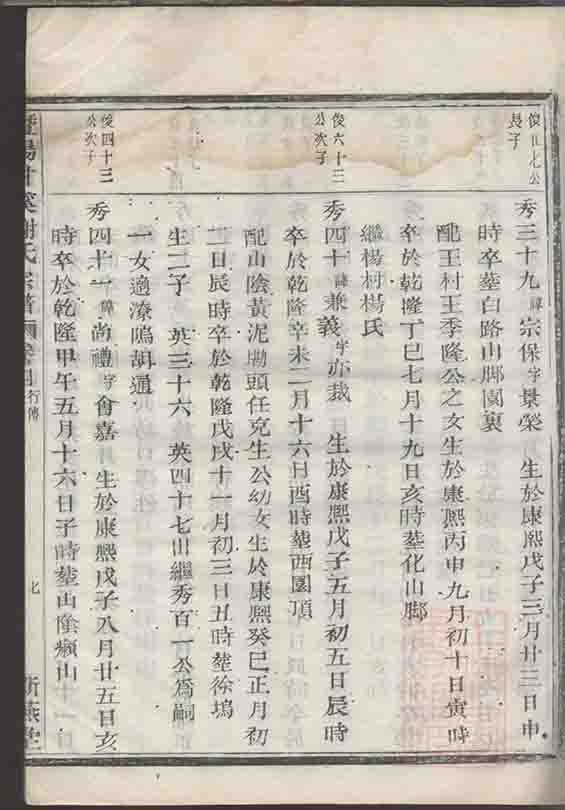 俊
公
長子
秀三十九諱宗保字景榮 生於康熙戊子三月廿三日申
時卒葬白路山脚園裏
配王村王季隆公之女生於康熙丙申九月初十日寅時
卒於乾隆丁巳七月十九日亥時葬化山脚
繼楊村楊氏
俊六十三
公次子
秀四十諱兼義字亦裁 生於康熙戊子五月初五日辰時
卒於乾隆辛未二月十六日酉時葬西園頂
配山陰黃泥坳頭任克生公幼女生於康熙癸巳正月初
二日辰時卒於乾隆戊戌十一月初三日丑時葬徐塢
生二子 英三十六 英四十七出繼秀百一公爲嗣
一女適潦隖胡通
俊四十三
公次子
秀四十一諱尚禮字會嘉 生於康熙戊子八月廿五日亥
時卒於乾隆甲午五月十六日子時葬山陰癩山
暨陽 溪謝氏宗譜 行傳 七